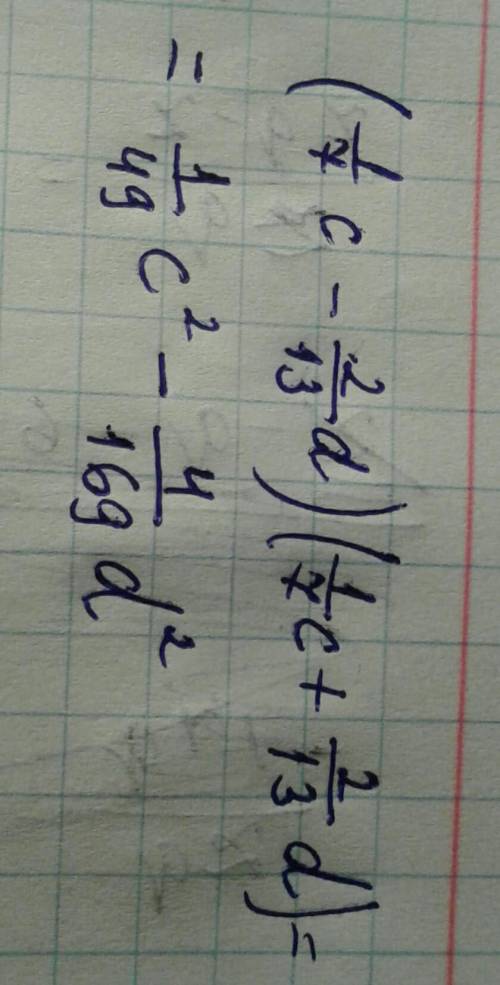 (1/7 c - 2/13 d)(1/7 c + 2/13 d) =
= 1/49 c² - 4/169 d²